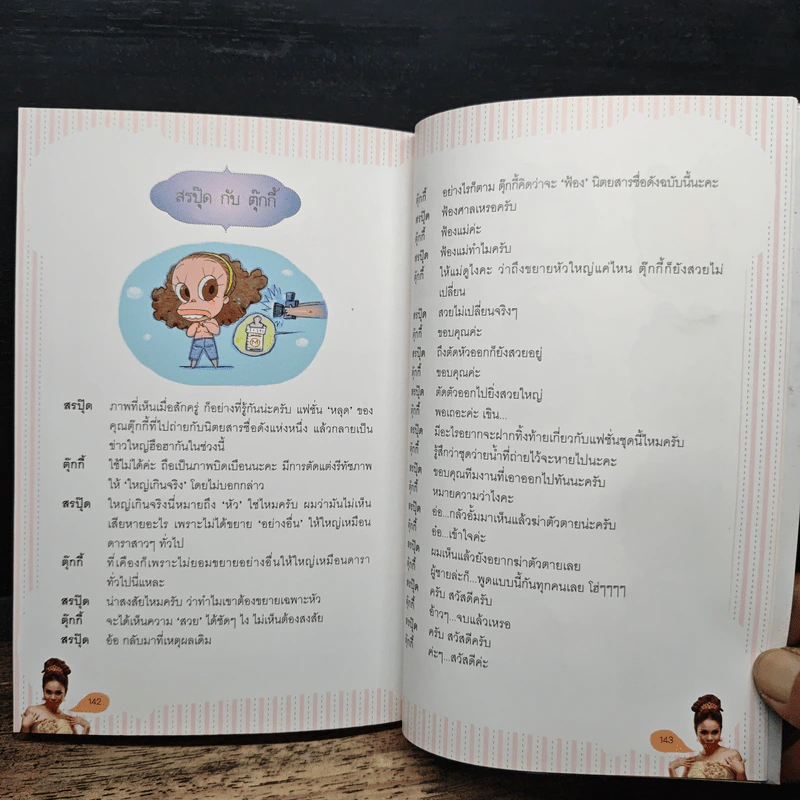 สรปุ๊ด กับ ตุ๊กกี้
สรปุ๊ด ภาพที่เห็นเมื่อสักครู่ ก็อย่างที่รู้กันน่ะครับ แฟชั่น 'หลุด' ของ
คุณตุ๊กกี้ที่ไปถ่ายกับนิตยสารชื่อดังแห่งหนึ่ง แล้วกลายเป็น
ข่าวใหญ่ฮือฮากันในช่วงนี้
ตุ๊กกี้ ใช้ไม่ได้ค่ะ ถือเป็นภาพบิดเบือนนะคะ มีการตัดแต่งรีทัชภาพ
ให้ 'ใหญ่เกินจริง' โดยไม่บอกกล่าว
สรปุ๊ด ใหญ่เกินจริงนี่หมายถึง 'หัว' ใช่ไหมครับ ผมว่ามันไม่เห็น
เสียหายอะไร เพราะไม่ได้ขยาย 'อย่างอื่น' ให้ใหญ่เหมือน
ดาราสาวๆ ทั่วไป
ตุ๊กกี้ ที่เคืองก็เพราะไม่ยอมขยายอย่างอื่นให้ใหญ่เหมือนดารา
ทั่วไปนี่แหละ
สรปุ๊ด น่าสงสัยไหมครับ ว่าทำไมเขาต้องขยายเฉพาะหัว
ตุ๊กกี้ จะได้เห็นความ 'สวย' ได้ชัดๆ ไง ไม่เห็นต้องสงสัย
สรปุ๊ด อ้อ กลับมาที่เหตุผลเดิม
142
ตุ๊กกี้ อย่างไรก็ตาม ตุ๊กกี้คิดว่าจะ 'ฟ้อง' นิตยสารชื่อดังฉบับนี้นะคะ
สรปุ๊ด ฟ้องศาลเหรอครับ
ตุ๊กกี้ ฟ้องแม่ค่ะ
สรปุ๊ด ฟ้องแม่ทำไมครับ
ตุ๊กกี้ ให้แม่ดูไงคะ ว่าถึงขยายหัวใหญ่แค่ไหน ตุ๊กกี้ก็ยังสวยไม่
เปลี่ยน
สรปุ๊ด สวยไม่เปลี่ยนจริงๆ
ตุ๊กกี้ ขอบคุณค่ะ
สรปุ๊ด ถึงตัดหัวออกก็ยังสวยอยู่
ตุ๊กกี้ ขอบคุณค่ะ
สรปุ๊ด ตัดตัวออกไปยิ่งสวยใหญ่
ตุ๊กกี้ พอเถอะค่ะ เขิน...
สรปุ๊ด มีอะไรอยากจะฝากทิ้งท้ายเกี่ยวกับแฟชั่นชุดนี้ไหมครับ
ตุ๊กกี้ รู้สึกว่าชุดว่ายน้ำที่ถ่ายไว้จะหายไปนะคะ
สรปุ๊ด ขอบคุณทีมงานที่เอาออกไปทันนะครับ
ตุ๊กกี้ หมายความว่าไงคะ
สรปุ๊ด อ๋อ...กลัวอั้มมาเห็นแล้วฆ่าตัวตายน่ะครับ
ตุ๊กกี้ อ๋อ...เข้าใจค่ะ
สรปุ๊ด ผมเห็นแล้วยังอยากฆ่าตัวตายเลย
ตุ๊กกี้ ผู้ชายล่ะก็...พูดแบบนี้กันทุกคนเลย โฮ่ๆๆๆ
สรปุ๊ด ครับ สวัสดีครับ
ตุ๊กกี้ อ้าวๆ...จบแล้วเหรอ
สรปุ๊ด ครับ สวัสดีครับ
ตุ๊กกี้ ค่ะๆ...สวัสดีค่ะ
143